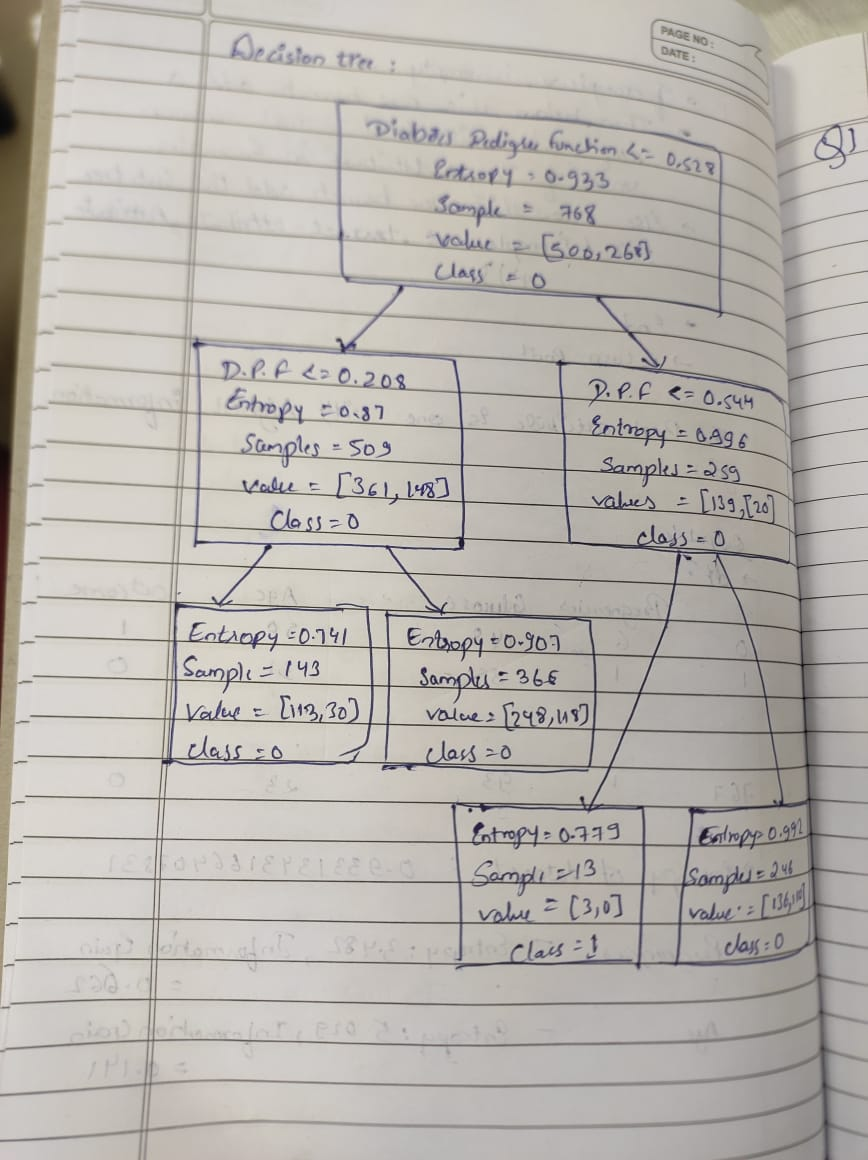 PAGE NO:
DATE:
Decision tree :
Q1
Diabetes Pedigree function <= 0.528
Entropy = 0.933
Sample = 768
value = [500, 268]
Class = 0
D.P.F <= 0.208
Entropy = 0.87
Samples = 509
value = [361, 148]
Class = 0
D.P.F <= 0.544
Entropy = 0.996
Samples = 259
values = [139, 120]
class = 0
Entropy = 0.741
Sample = 143
Value = [113, 30]
class = 0
Entropy = 0.907
Samples = 366
value = [248, 118]
class = 0
Entropy = 0.779
Sample = 13
value = [3, 0]
Class = 1
Entropy = 0.992
Samples = 246
value = [136,
class = 0